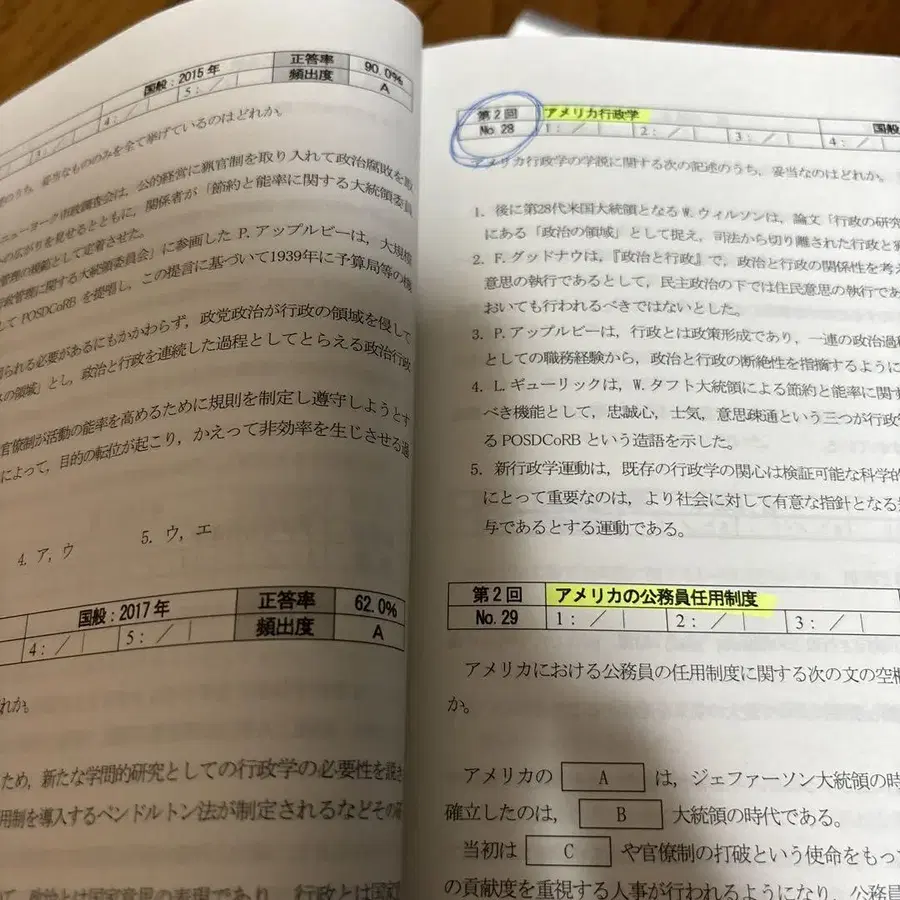 国般：2015年 正答率 90.0%
3：／ 4：／ 5：／ 頻出度 A
のうち，妥当なもののみを全て挙げているのはどれか。
ニューヨーク市政調査会は，公的経営に猟官制を取り入れて政治腐敗を
の広がりを見せるとともに，関係者が「節約と能率に関する大統領委員
管理の模範として定着させた。
行政管理に関する大統領委員会」に参画した P. アップルビーは，大規模
して POSDCoRB を提唱し，この提言に基づいて1939年に予算局等の機
られる必要があるにもかかわらず，政党政治が行政の領域を侵して
の領域」とし，政治と行政を連続した過程としてとらえる政治行政
官僚制が活動の能率を高めるために規則を制定し遵守しようとす
によって，目的の転位が起こり，かえって非効率を生じさせる
4. ア，ウ 5. ウ，エ
国般：2017年 正答率 62.0%
4：／ 5：／ 頻出度 A
れか。
ため，新たな学問的研究としての行政学の必要性を説き
用制を導入するペンドルトン法が制定されるなどその
政治とは国家意思の表現であり，行政とは国家
第2回 アメリカ行政学
No. 28 1：／ 2：／ 3：／ 4：／ 国般
アメリカ行政学の学説に関する次の記述のうち，妥当なのはどれか。
1. 後に第28代米国大統領となる W. ウィルソンは，論文「行政の研究
にある「政治の領域」として捉え，司法から切り離された行政と
2. F. グッドナウは，『政治と行政』で，政治と行政の関係性を考
意思の執行であるとして，民主政治の下では住民意思の執行であ
おいても行われるべきではないとした。
3. P. アップルビーは，行政とは政策形成であり，一連の政治過程
としての職務経験から，政治と行政の断絶性を指摘するように
4. L. ギューリックは，W. タフト大統領による節約と能率に関す
べき機能として，忠誠心，士気，意思疎通という三つが行政学
る POSDCoRB という造語を示した。
5. 新行政学運動は，既存の行政学の関心は検証可能な科学的
にとって重要なのは，より社会に対して有意な指針となる
与であるとする運動である。
第2回 アメリカの公務員任用制度
No. 29 1：／ 2：／ 3：／
アメリカにおける公務員の任用制度に関する次の文の空欄
か。
アメリカの A は，ジェファーソン大統領の時
確立したのは， B 大統領の時代である。
当初は C や官僚制の打破という使命をもっ
の貢献度を重視する人事が行われるようになり，公務員